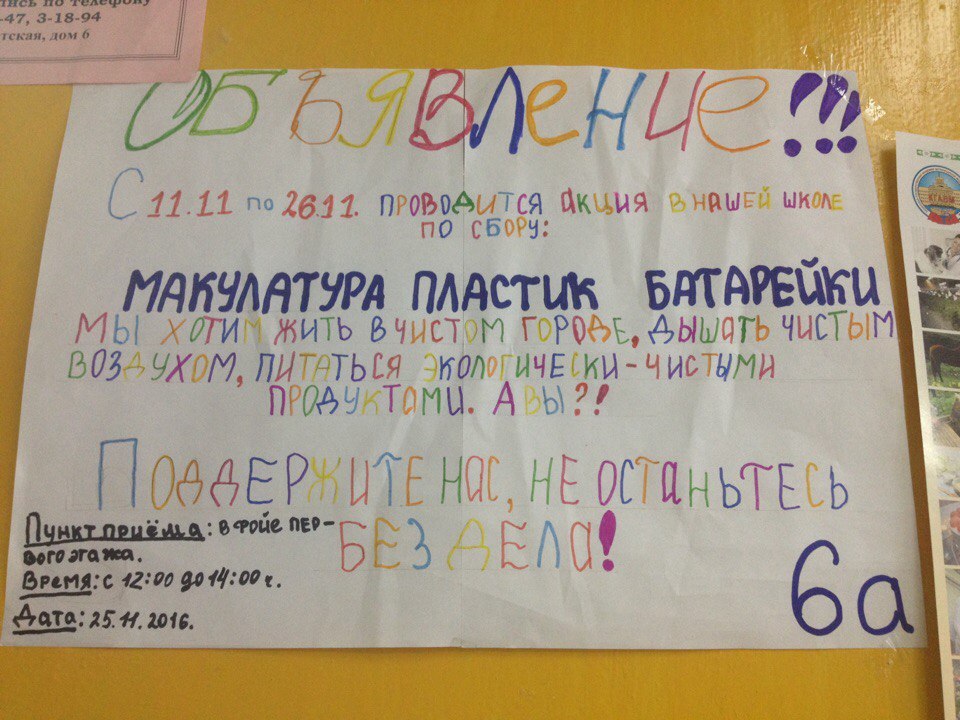 пись по телефону
-47, 3-18-94
тская, дом 6
ОБЪЯВЛЕНИЕ!!!
С 11.11 по 26.11. ПРОВОДИТСЯ АКЦИЯ В НАШЕЙ ШКОЛЕ
ПО СБОРУ:
МАКУЛАТУРА ПЛАСТИК БАТАРЕЙКИ
МЫ ХОТИМ ЖИТЬ В ЧИСТОМ ГОРОДЕ, ДЫШАТЬ ЧИСТЫМ
ВОЗДУХОМ, ПИТАТЬСЯ ЭКОЛОГИЧЕСКИ-ЧИСТЫМИ
ПРОДУКТАМИ. А ВЫ?!
ПОДДЕРЖИТЕ НАС, НЕ ОСТАНЬТЕСЬ
БЕЗ ДЕЛА!
Пункт приёма: в фойе пер-
вого этажа.
Время: с 12:00 до 14:00 ч.
Дата: 25.11.2016.
6а